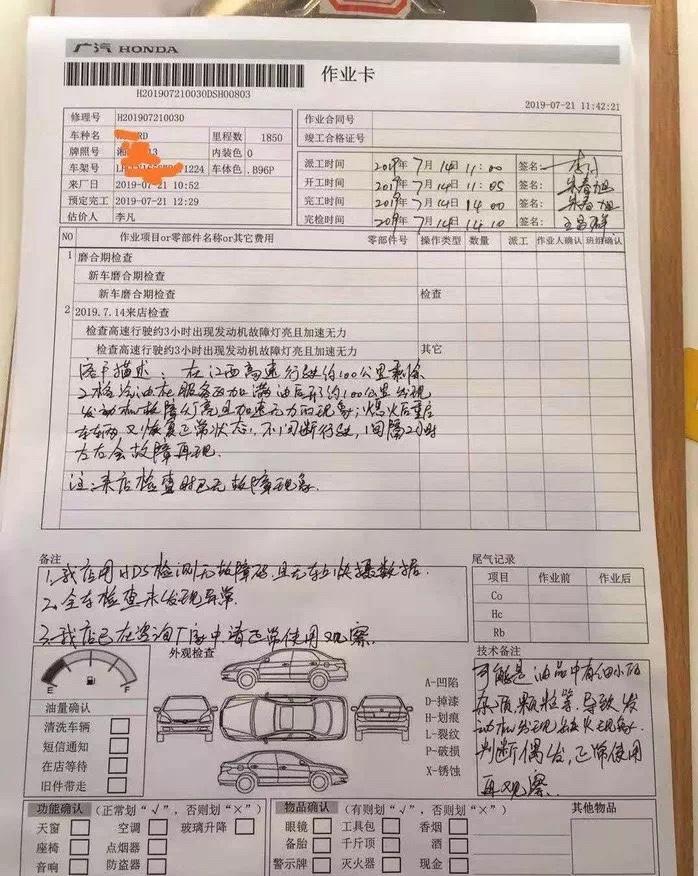 广汽 HONDA
作业卡
H201907210030DSH00803
2019-07-21 11:42:21
修理号 H201907210030
车种名 RD 里程数 1850
牌照号 湘 13 内装色 0
车架号 1224 车体色 .B96P
来厂日 2019-07-21 10:52
预定完工 2019-07-21 12:29
估价人 李凡
作业合同号
竣工合格证号
派工时间 2019年7月14日 11:00 签名:
开工时间 2019年7月14日 11:05 签名: 朱春旭
完工时间 2019年7月14日 14:00 签名: 朱春旭
完检时间 2019年7月14日 14:10 签名:
NO 作业项目or零部件名称or其它费用 零部件号 操作类型 数量 派工 作业人确认 班组确认
1 磨合期检查
新车磨合期检查
新车磨合期检查 检查
2 2019.7.14来店检查
检查高速行驶约3小时出现发动机故障灯亮且加速无力
检查高速行驶约3小时出现发动机故障灯亮且加速无力 其它
客户描述:在江西高速行驶约100公里剩余
2格汽油在服务区加满油后形约100公里出现
发动机故障灯亮且加速无力的现象;熄火后重启
车辆又恢复正常状态,不间断行驶,间隔2小时
左右会故障再现.
注:来店检查时已无故障现象.
备注
1.我店用HDS检测无故障码且无车上快摄数据.
2.全车检查未发现异常.
3.我店已在咨询厂家中请正常使用观察.
尾气记录
项目 作业前 作业后
Co
Hc
Rb
外观检查
E F
油量确认
清洗车辆
短信通知
在店等待
旧件带走
A-凹陷
D-掉漆
H-划痕
L-裂纹
P-破损
X-锈蚀
技术备注
可能是油品中有细小的
杂质颗粒等.导致发
动机出现缺火现象.
判断偶发,正常使用
再观察.
功能确认 (正常划“√”,否则划“×”)
天窗 空调 玻璃升降
座椅 点烟器
音响 防盗器
物品确认 (有则划“√”,否则划“×”)
眼镜 工具包 香烟
备胎 千斤顶 酒
警示牌 灭火器 现金
其他物品